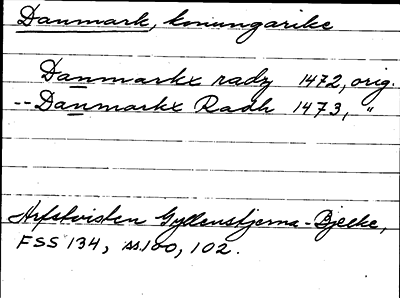 Danmark, konungarike
Danmarkx radz 1472, orig.
-- Danmarkx Radh 1473, "
Arfstvisten Gyllenstjerna - Bjelke,
FSS 134, ss.100, 102.